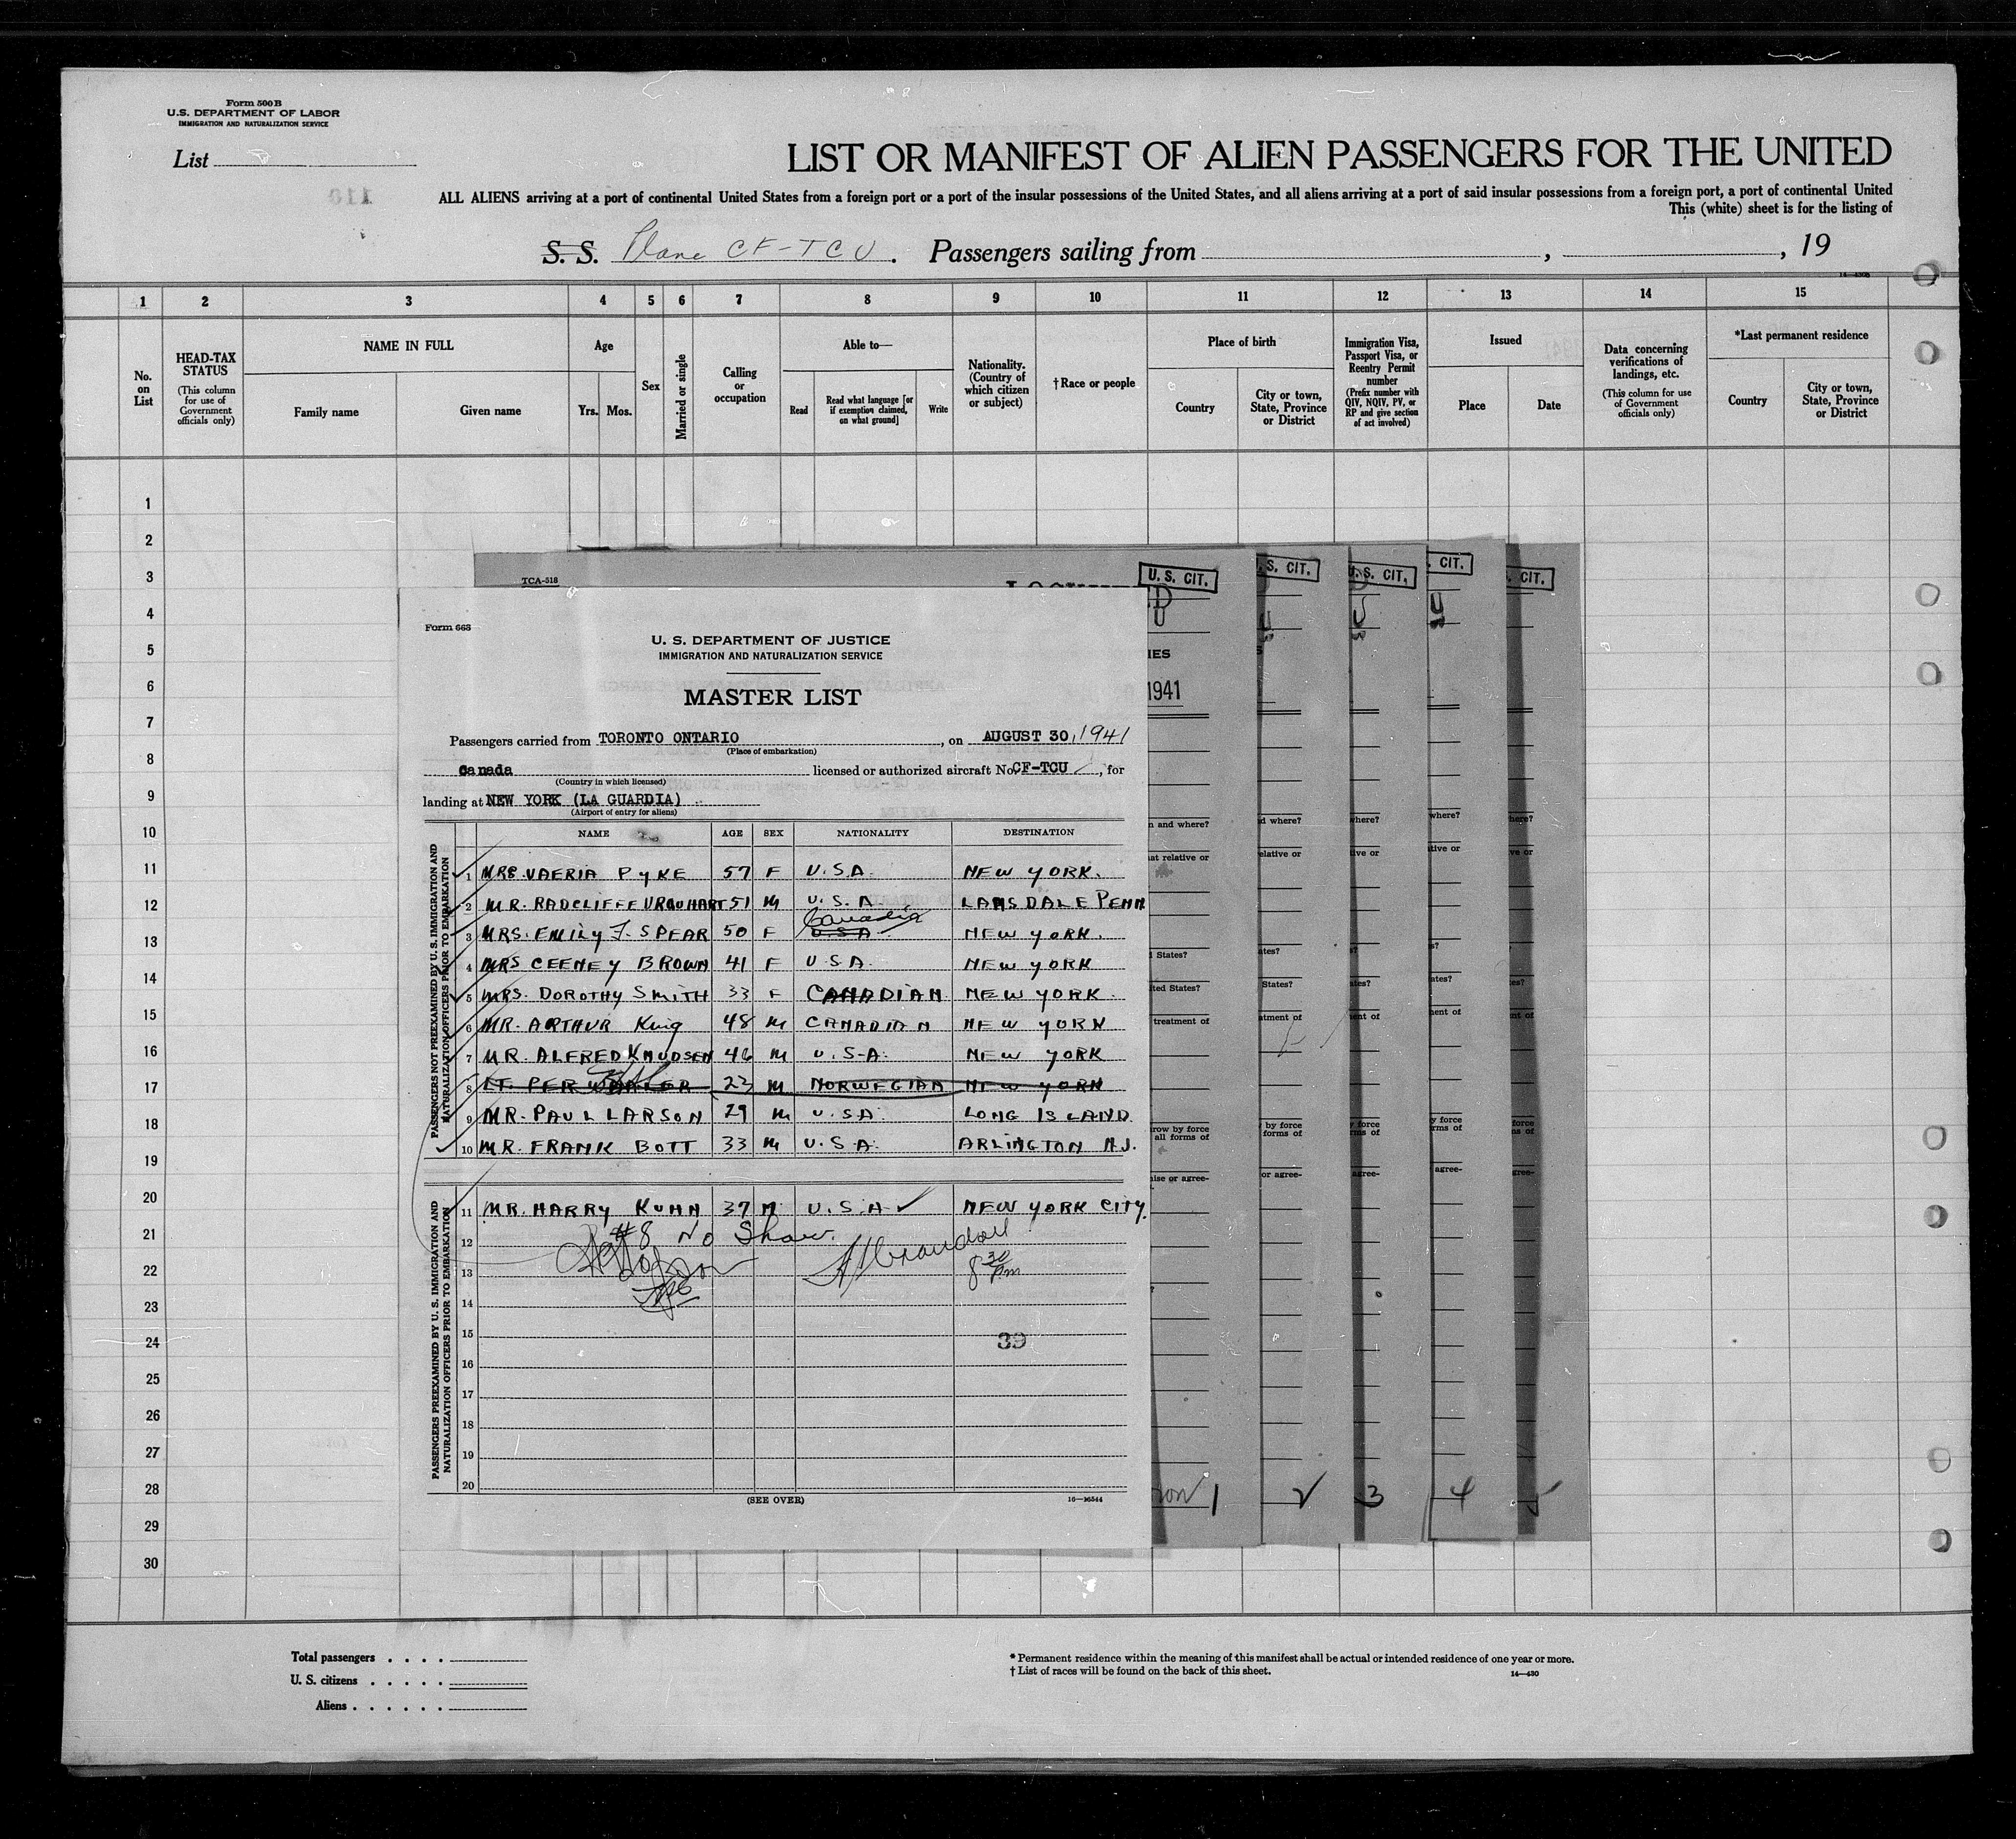 Form 500 B
U.S. DEPARTMENT OF LABOR
IMMIGRATION AND NATURALIZATION SERVICE
List
LIST OR MANIFEST OF ALIEN PASSENGERS FOR THE UNITED
ALL ALIENS arriving at a port of continental United States from a foreign port or a port of the insular possessions of the United States, and all aliens arriving at a port of said insular possessions from a foreign port, a port of continental United
This (white) sheet is for the listing of
S. S. Plane CF-TCU. Passengers sailing from , , 19
1 2 3 4 5 6 7 8 9 10 11 12 13 14 15
No. on List
HEAD-TAX STATUS
(This column for use of Government officials only)
NAME IN FULL
Family name
Given name
Age
Yrs. Mos.
Sex
Married or single
Calling or occupation
Able to—
Read
Read what language [or if exemption claimed, on what ground]
Write
Nationality. (Country of which citizen or subject)
†Race or people
Place of birth
Country
City or town, State, Province or District
Immigration Visa, Passport Visa, or Reentry Permit number
(Prefix number with QIV, NQIV, PV, or RP and give section of act involved)
Issued
Place
Date
Data concerning verifications of landings, etc.
(This column for use of Government officials only)
*Last permanent residence
Country
City or town, State, Province or District
1
2
3
4
5
6
7
8
9
10
11
12
13
14
15
16
17
18
19
20
21
22
23
24
25
26
27
28
29
30
TCA-518
U. S. CIT.
S. CIT.
U.S. CIT.
. CIT.
. CIT.
IES
1941
Form 668
U. S. DEPARTMENT OF JUSTICE
IMMIGRATION AND NATURALIZATION SERVICE
MASTER LIST
Passengers carried from TORONTO ONTARIO, on AUGUST 30, 1941
(Place of embarkation)
Canada licensed or authorized aircraft No. CF-TCU, for
(Country in which licensed)
landing at NEW YORK (LA GUARDIA)
(Airport of entry for aliens)
NAME AGE SEX NATIONALITY DESTINATION
PASSENGERS NOT PREEXAMINED BY U. S. IMMIGRATION AND NATURALIZATION OFFICERS PRIOR TO EMBARKATION
1 MRS. VAERIA PYKE 57 F U.S.A. NEW YORK.
2 MR. RADCLIFFE URQUHART 51 M U.S.A LANSDALE PENN
3 MRS. EMILY J. SPEAR 50 F U.S.A. Canadian NEW YORK.
4 MRS CEENEY BROWN 41 F U.S.A. NEW YORK
5 MRS. DOROTHY SMITH 33 F CANADIAN NEW YORK.
6 MR. ARTHUR King 48 M CANADIAN NEW YORK
7 MR. ALFRED KNUDSEN 46 M U.S.A. NEW YORK
8 LT. PER 23 M NORWEGIAN NEW YORK
9 MR. PAUL LARSON 29 M U.S.A. LONG ISLAND
10 MR. FRANK BOTT 33 M U.S.A. ARLINGTON N.J.
PASSENGERS PREEXAMINED BY U. S. IMMIGRATION AND NATURALIZATION OFFICERS PRIOR TO EMBARKATION
11 MR. HARRY KUHN 37 M U.S.A NEW YORK CITY.
12 #8 No Show.
13 8 30 pm
14
15 39
16
17
18
19
20
(SEE OVER)
16—16544
n and where?
d where?
here?
where?
here?
at relative or
elative or
tive or
tive or
ve or
d States?
ates?
s?
ited States?
States?
ates?
ates?
treatment of
atment of
ent of
ment of
nt of
row by force
all forms of
by force
forms of
y force
rms of
y force
rms of
force
ns of
ise or agree-
or agree-
agree-
agree-
gree-
1
2
3
4
5
Total passengers
U. S. citizens
Aliens
* Permanent residence within the meaning of this manifest shall be actual or intended residence of one year or more.
† List of races will be found on the back of this sheet.
14—430